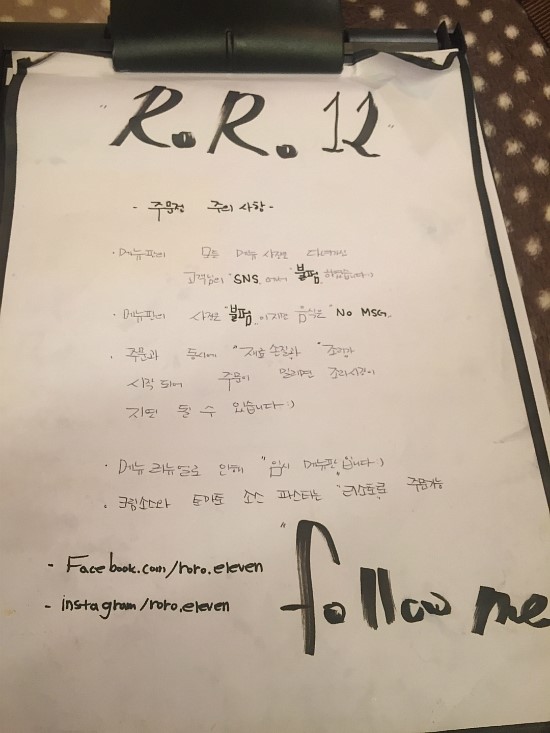 "R.R. 11"
- 주문전 주의 사항 -
· 메뉴판의 모든 메뉴 사진은 다녀가신
고객님의 "SNS" 에서 "불펌" 하였습니다 :)
· 메뉴판의 사진은 "불펌" 이지만 음식은 "No MSG"
· 주문과 동시에 "재료손질과" "조리가
시작 되어 주문이 밀리면 조리시간이
지연 될 수 있습니다 :)
· 메뉴 리뉴얼로 인해 "임시 메뉴판"입니다 :)
· 크림소스와 토마토 소스 파스타는 "리소토로" 주문가능
- Facebook.com/roro.eleven
- instagram/roro.eleven
"follow me